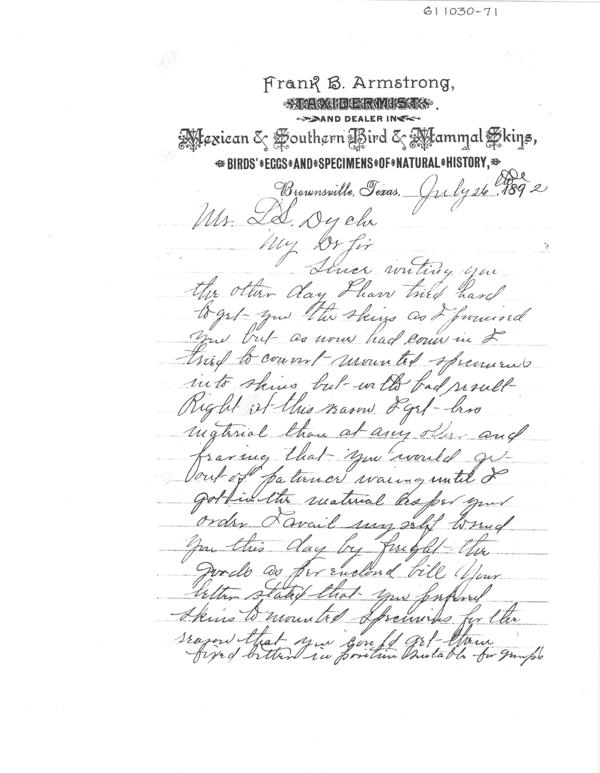 611030-71
Frank B. Armstrong,
TAXIDERMIST.
AND DEALER IN
Mexican & Southern Bird & Mammal Skins,
BIRDS' EGGS AND SPECIMENS OF NATURAL HISTORY,
Brownsville, Texas, July 26 1892
Mr. L L Dyche
My Dr Sir
Since writing you
the other day I have tried hard
to get you the skins as I promised
you but as none had come in I
tried to convert mounted specimens
into skins but with bad result
Right at this season I get less
material than at any other and
fearing that you would get
out of patience waiting until I
got in the material as per your
order I avail myself to send
you this day by freight the
goods as per enclosed bill Your
letter stated that you prefered
skins to mounted specimens for the
reason that you could get them
fixed better in position suitable for groups